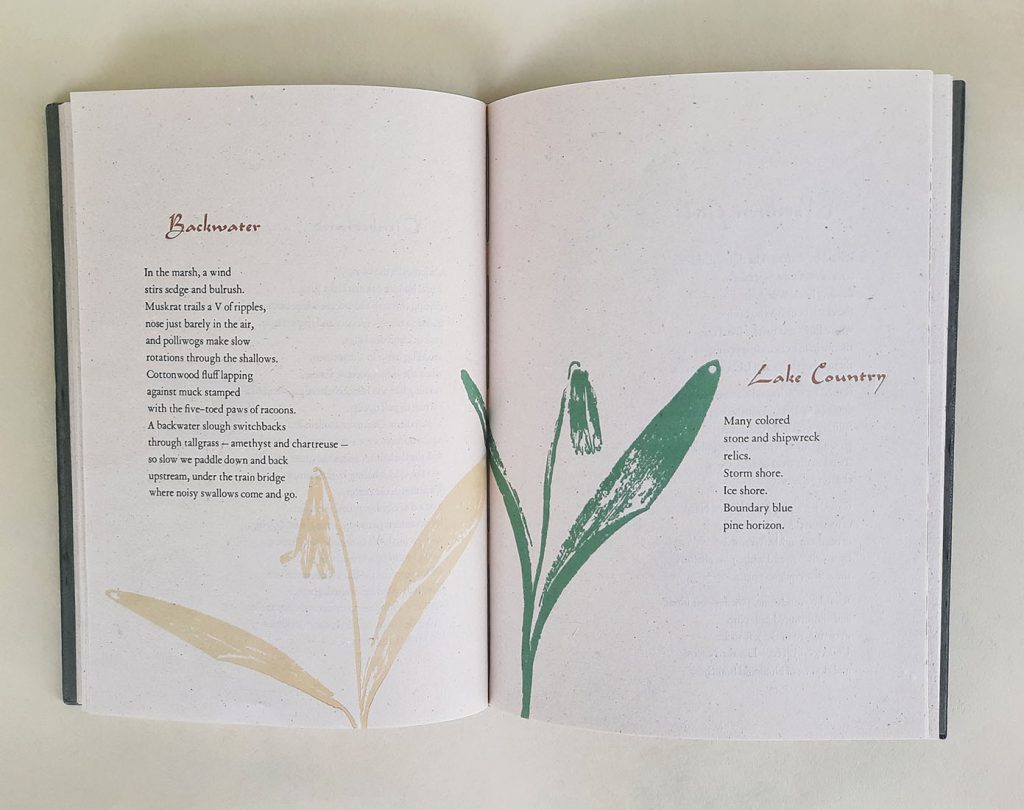 Backwater
In the marsh, a wind
stirs sedge and bulrush.
Muskrat trails a V of ripples,
nose just barely in the air,
and polliwogs make slow
rotations through the shallows.
Cottonwood fluff lapping
against muck stamped
with the five-toed paws of racoons.
A backwater slough switchbacks
through tallgrass – amethyst and chartreuse –
so slow we paddle down and back
upstream, under the train bridge
where noisy swallows come and go.
Lake Country
Many colored
stone and shipwreck
relics.
Storm shore.
Ice shore.
Boundary blue
pine horizon.